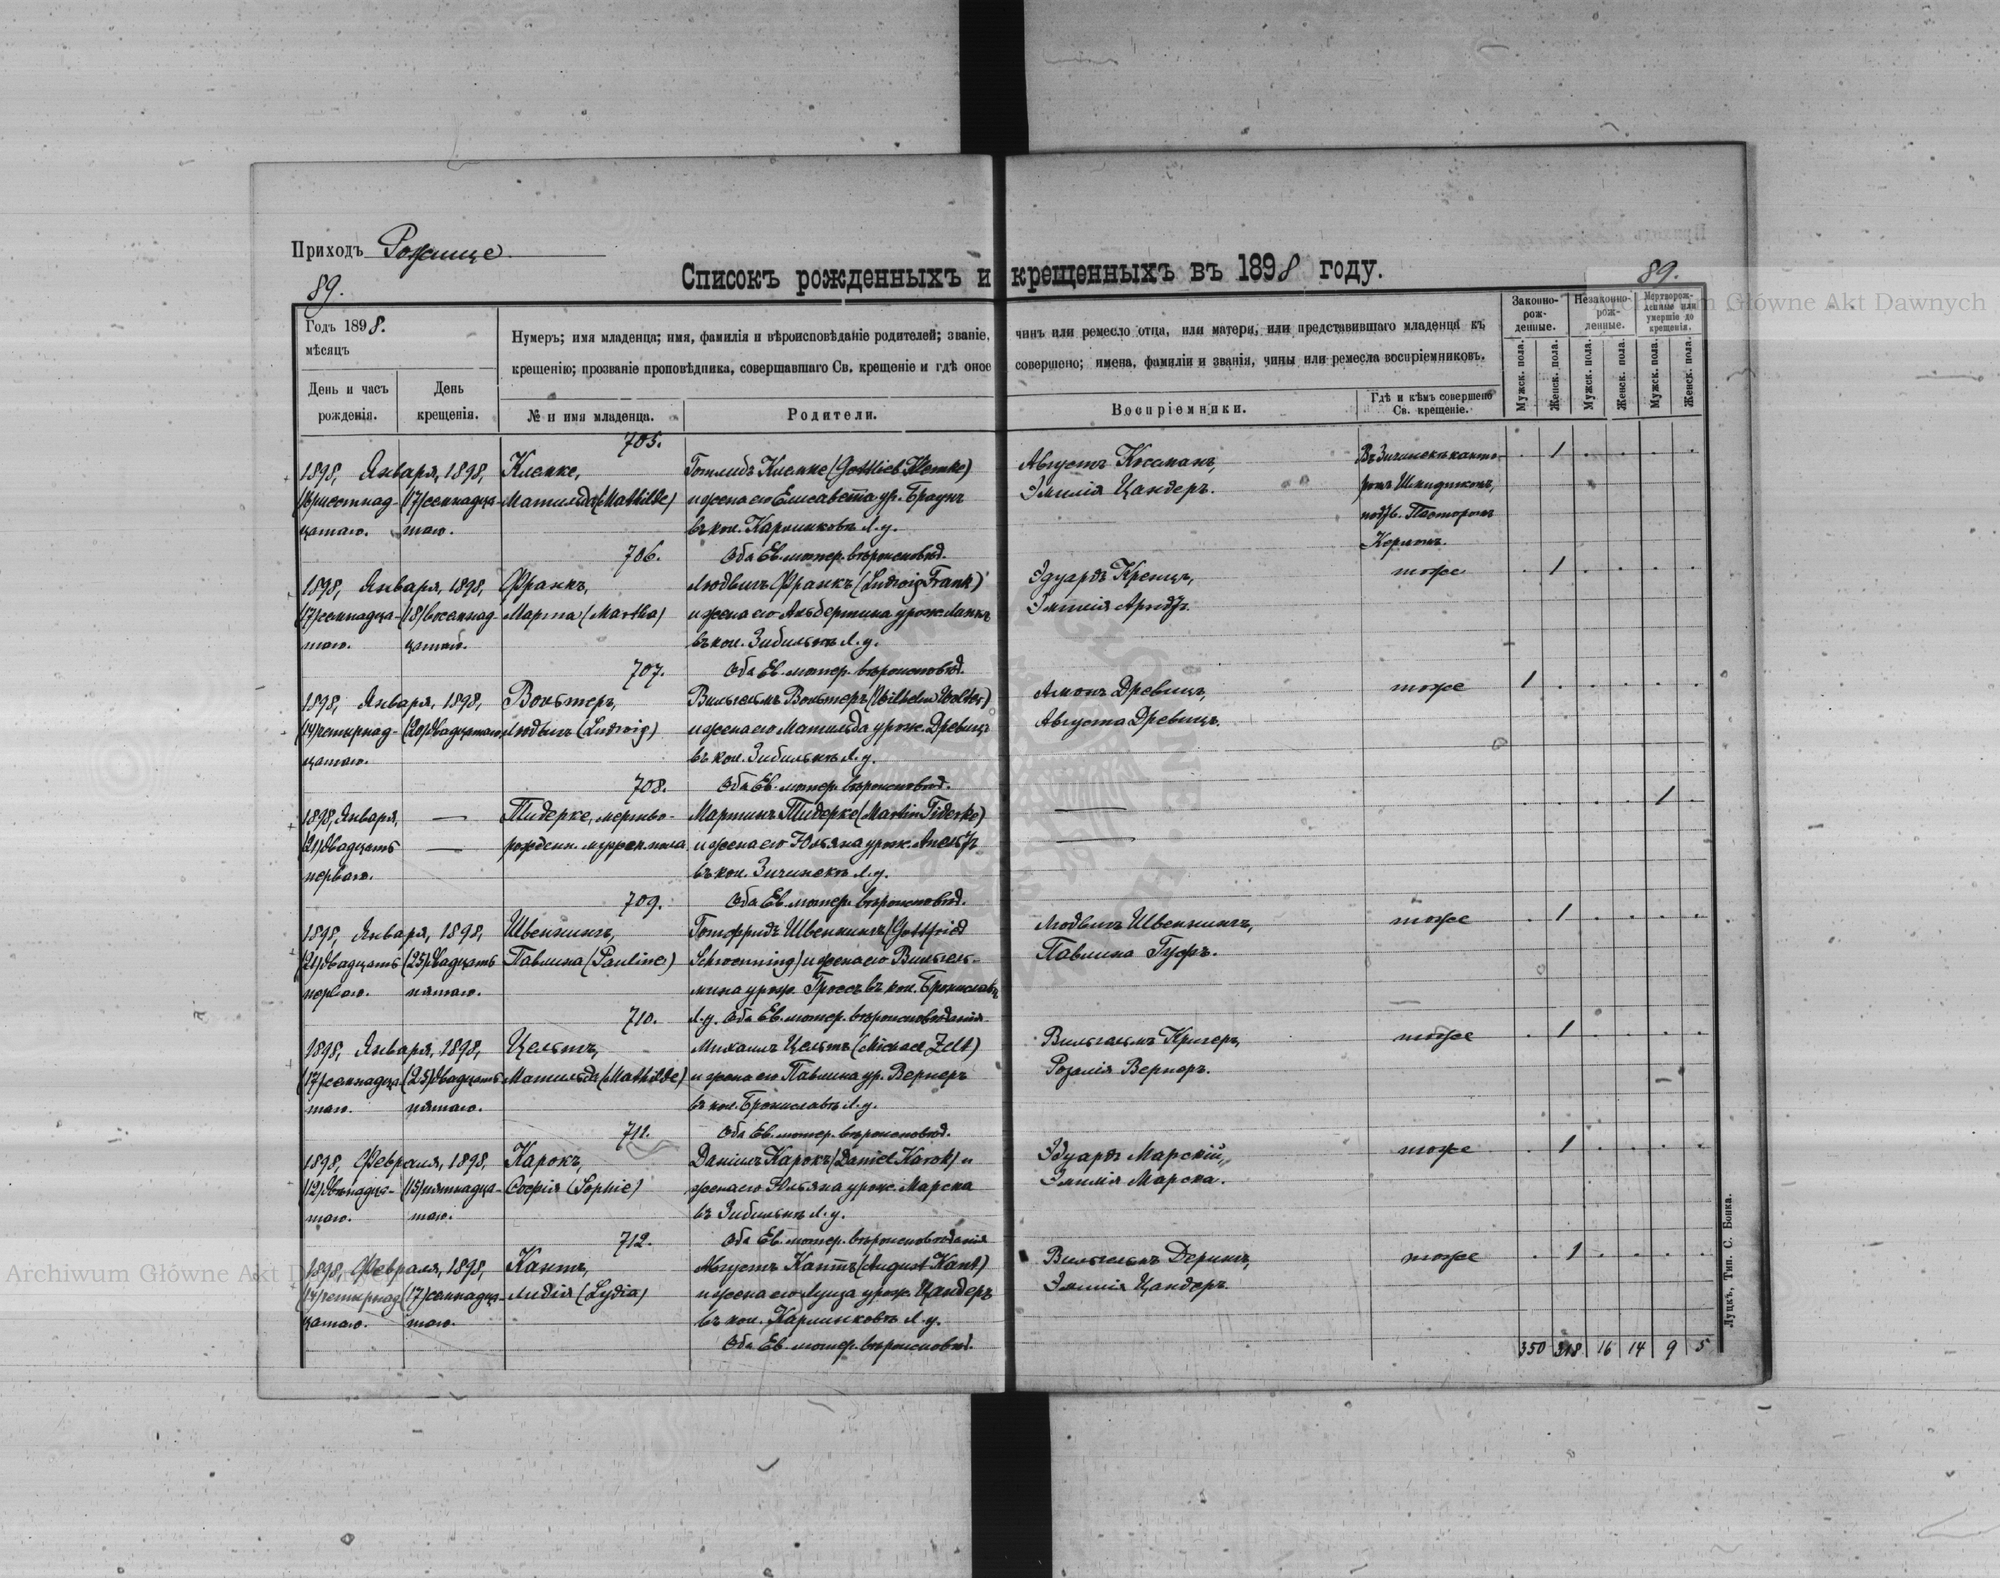 Приходъ Рожище
89.
Списокъ рожденныхъ и крещенныхъ въ 1898 году.
89.
Годъ 1898.
мѣсяцъ
День и часъ рожденія.
День крещенія.
Нумеръ; имя младенца; имя, фамилія и вѣроисповѣданіе родителей; званіе, чинъ или ремесло отца, или матери, или представившаго младенца къ
крещенію; прозваніе проповѣдника, совершавшаго Св. крещеніе и гдѣ оное совершено; имена, фамиліи и званія, чины или ремесла воспріемниковъ.
№ и имя младенца.
Родители.
Воспріемники.
Гдѣ и кѣмъ совершено Св. крещеніе.
Законно-рож-денные.
Незаконно-рож-денные.
Мертворож-денные или умершіе до крещенія.
Мужск. пола.
Женск. пола.
Мужск. пола.
Женск. пола.
Мужск. пола.
Женск. пола.
705.
1898, Января, 1898,
(16)шестнад-
цатаго.
(17)семнадца-
таго.
Клемке,
Матильда (Mathilde)
Готлибъ Клемке (Gottlieb Klemke)
и жена его Елисавета ур. Браунъ
въ кол.
Л. у.
Оба Ев. лютер. вѣроисповѣд.
Августъ
Эмилія Цандеръ.
подтв. Пасторомъ
1
706.
1898, Января, 1898,
(17)семнадца-
таго.
(18)восемнад-
цатаго.
Франкъ,
Марта (Martha)
Людвигъ Франкъ (Ludwig Frank)
и жена его Альбертина урож.
въ кол. Л. у.
Оба Ев. лютер. вѣроисповѣд.
Эдуардъ
Эмилія Арндтъ.
тоже
1
707.
1898, Января, 1898,
(14)четырнад-
цатаго.
(20)двадцатаго
Вольтеръ,
Людвигъ (Ludwig)
Вильгельмъ Вольтеръ (Wilhelm Wolter)
и жена его Матильда урож. Древицъ
въ кол. Л. у.
Оба Ев. лютер. вѣроисповѣд.
Древицъ,
Августа Древицъ.
тоже
1
708.
1898, Января,
(21)двадцать
перваго.
—
—
Тидерке, мертво-
рожденн. мужск. пола
Мартинъ Тидерке (Martin Tiderke)
и жена его Юльяна урож.
въ кол. Л. у.
Оба Ев. лютер. вѣроисповѣд.
1
709.
1898, Января, 1898,
(21)двадцать
перваго.
(25)двадцать
пятаго.
Швеннингъ,
Павлина (Pauline)
Готфридъ Швеннингъ (Gottfried
Schwenning) и жена его Вильгель-
мина урож. Гроссъ въ кол. Брониславъ
Л. у. Оба Ев. лютер. вѣроисповѣданія
Людвигъ Швеннингъ,
Павлина
тоже
1
710.
1898, Января, 1898,
(17)семнадца-
таго.
(25)двадцать
пятаго.
Цельтъ,
Матильда (Mathilde)
Михаилъ Цельтъ (Michael Zelt)
и жена его Павлина ур. Вернеръ
въ кол. Брониславъ Л. у.
Оба Ев. лютер. вѣроисповѣд.
Вильгельмъ Кригеръ,
Розалія Вернеръ.
тоже
1
711.
1898, Февраля, 1898,
(12)двѣнадца-
таго.
(15)пятнадца-
таго.
Карокъ,
Софія (Sophie)
Даніилъ Карокъ (Daniel Karok) и
жена его Юльяна урож. Марска
въ Л. у.
Оба Ев. лютер. вѣроисповѣданія
Эдуардъ Марскій,
Эмилія Марска.
тоже
1
712.
1898, Февраля, 1898,
(14)четырнад-
цатаго.
(17)семнадца-
таго.
Кантъ,
Лидія (Lydia)
Августъ Кантъ (August Kant)
и жена его Луиза урож. Цандеръ
въ кол. Л. у.
Оба Ев. лютер. вѣроисповѣд.
Вильгельмъ
Эмилія Цандеръ.
тоже
1
350 318 16 14 9 5
Луцкъ, Тип. С. Бонка.
Archiwum Główne Akt Dawnych
Archiwum Główne Akt Dawnych